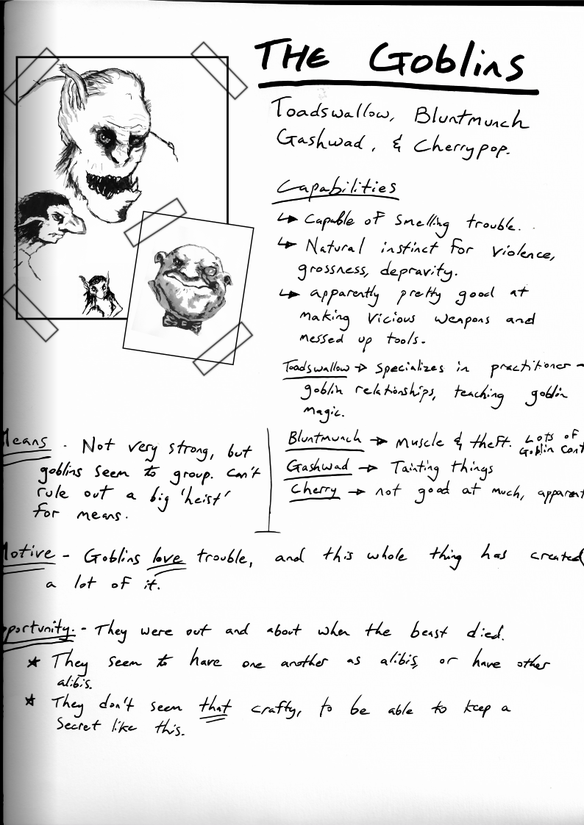 THE Goblins
Toadswallow, Bluntmunch
Gashwad, & Cherrypop.
Capabilities
↳ Capable of smelling trouble.
↳ Natural instinct for violence,
grossness, depravity.
↳ apparently pretty good at
making vicious weapons and
messed up tools.
Toadswallow → Specializes in practitioner -
goblin relationships, teaching goblin
magic.
Bluntmunch → Muscle & theft. Lots of
Goblin cont
Gashwad → Tainting things
Cherry → not good at much, apparent
Means - Not very strong, but
goblins seem to group. Can't
rule out a big 'heist'
for means.
Motive - Goblins love trouble, and this whole thing has created
a lot of it.
pportunity. - They were out and about when the beast died.
* They seem to have one another as alibis, or have other
alibis.
* They don't seem that crafty, to be able to keep a
secret like this.